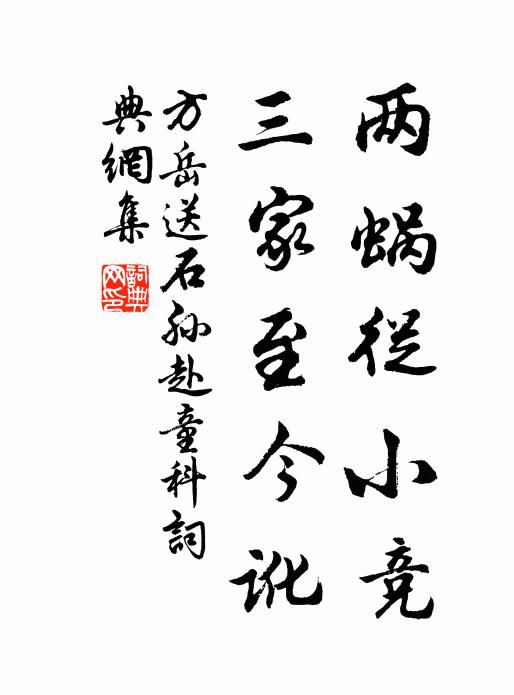 两蜗从小竞
三家至今讹
方岳送石孙赴童科詞
典網集
詞典
网印